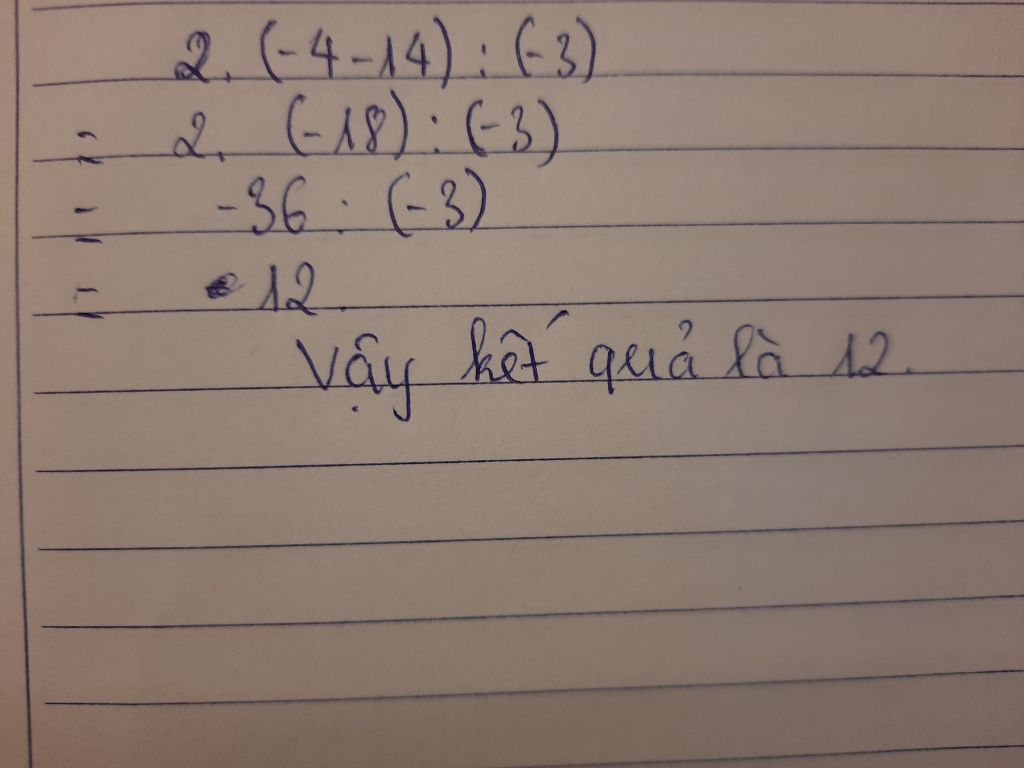 2. (-4-14) : (-3)
= 2. (-18) : (-3)
= -36 : (-3)
= 12.
Vậy kết quả là 12.